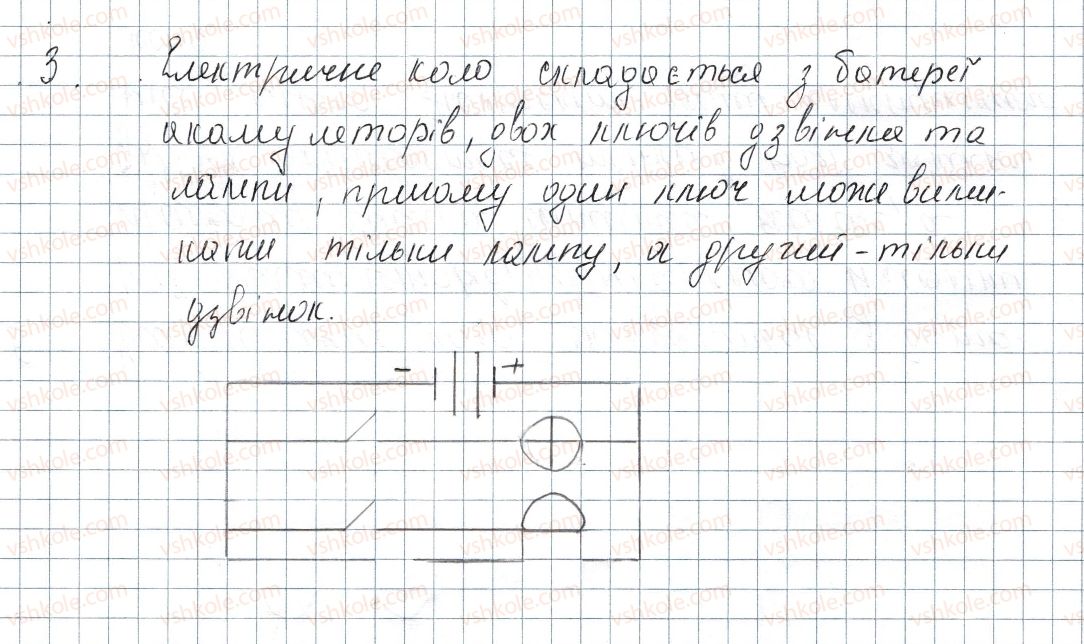 3. Електричне коло складається з батереї
акамуляторів, двох ключів дзвінка та
лампи, причому один ключ може вими-
кати тільки лампу, а другий - тільки
дзвінок.
- +